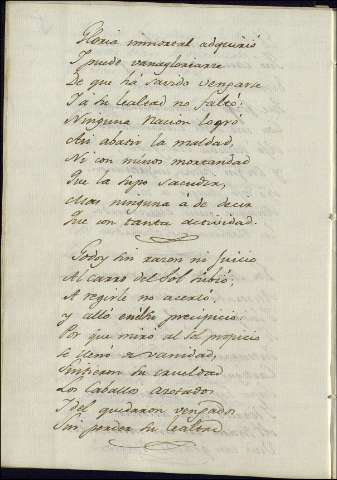 Gloria inmortal adquirió
I puede vanagloriarse
De que há savido vengarse
I a su Lealtad no faltó:
Ninguna Nacion logró
Asi abatir la maldad,
Ni con menos mortandad
Que la supo sacudir,
Mas ninguna á de decir
Que con tanta actividad.
Godoy sin razon ni juicio
Al carro del Sol subió,
A regirle no acertó,
y alló en él su precipicio:
Por que miró al Sol propicio
se llenó de vanidad,
Sufrieron su crueldad
Los Caballos azotados
I del quedaron vengados
Sin perder su Lealtad